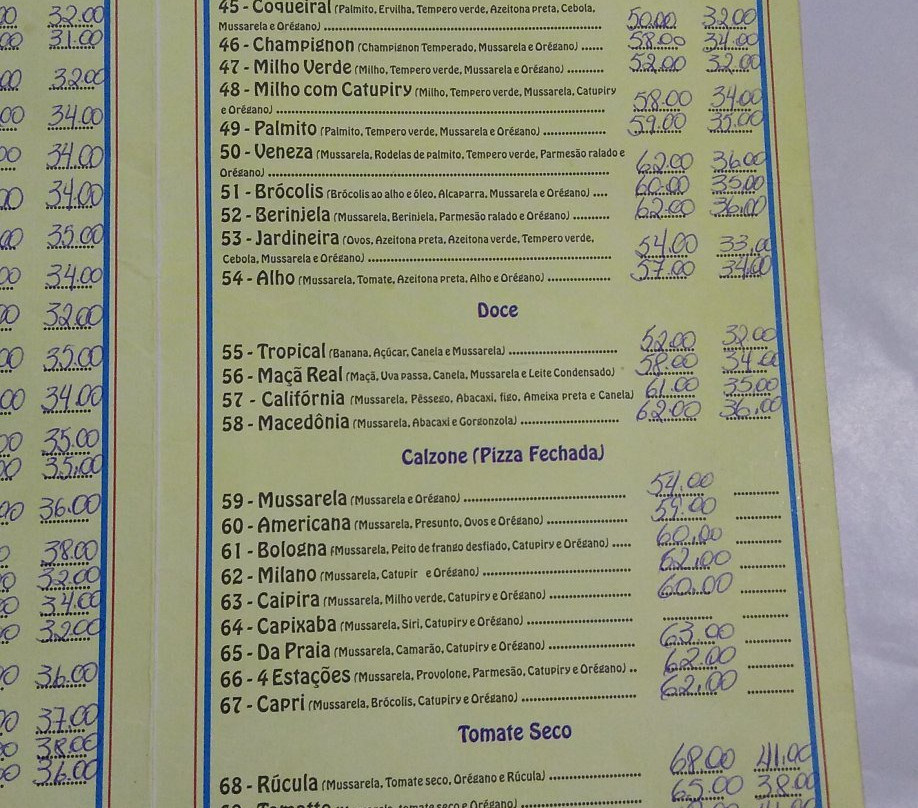 32.00
31.00
32.00
34.00
34.00
34.00
35.00
34.00
32.00
35.00
34.00
35.00
35.00
36.00
38.00
32.00
34.00
32.00
36.00
37.00
38.00
36.00
45 - Coqueiral (Palmito, Ervilha, Tempero verde, Azeitona preta, Cebola,
Mussarela e Orégano) 50.00 32.00
46 - Champignon (Champignon Temperado, Mussarela e Orégano) 58.00 34.00
47 - Milho Verde (Milho, Tempero verde, Mussarela e Orégano) 52.00 32.00
48 - Milho com Catupiry (Milho, Tempero verde, Mussarela, Catupiry
e Orégano) 58.00 34.00
49 - Palmito (Palmito, Tempero verde, Mussarela e Orégano) 59.00 35.00
50 - Veneza (Mussarela, Rodelas de palmito, Tempero verde, Parmesão ralado e
Orégano) 62.00 36.00
51 - Brócolis (Brócolis ao alho e óleo, Alcaparra, Mussarela e Orégano) 60.00 35.00
52 - Berinjela (Mussarela, Berinjela, Parmesão ralado e Orégano) 62.00 36.00
53 - Jardineira (Ovos, Azeitona preta, Azeitona verde, Tempero verde,
Cebola, Mussarela e Orégano) 54.00 33.00
54 - Alho (Mussarela, Tomate, Azeitona preta, Alho e Orégano) 57.00 34.00
Doce
55 - Tropical (Banana, Açúcar, Canela e Mussarela) 52.00 32.00
56 - Maçã Real (Maçã, Uva passa, Canela, Mussarela e Leite Condensado) 58.00 34.00
57 - Califórnia (Mussarela, Pêssego, Abacaxi, figo, Ameixa preta e Canela) 61.00 35.00
58 - Macedônia (Mussarela, Abacaxi e Gorgonzola) 62.00 36.00
Calzone (Pizza Fechada)
59 - Mussarela (Mussarela e Orégano) 54.00
60 - Americana (Mussarela, Presunto, Ovos e Orégano) 59.00
61 - Bologna (Mussarela, Peito de frango desfiado, Catupiry e Orégano) 60.00
62 - Milano (Mussarela, Catupir e Orégano) 62.00
63 - Caipira (Mussarela, Milho verde, Catupiry e Orégano) 60.00
64 - Capixaba (Mussarela, Siri, Catupiry e Orégano)
65 - Da Praia (Mussarela, Camarão, Catupiry e Orégano) 63.00
66 - 4 Estações (Mussarela, Provolone, Parmesão, Catupiry e Orégano) 62.00
67 - Capri (Mussarela, Brócolis, Catupiry e Orégano) 62.00
Tomate Seco
68 - Rúcula (Mussarela, Tomate seco, Orégano e Rúcula) 68.00 41.00
tomate seco e Orégano) 65.00 38.00